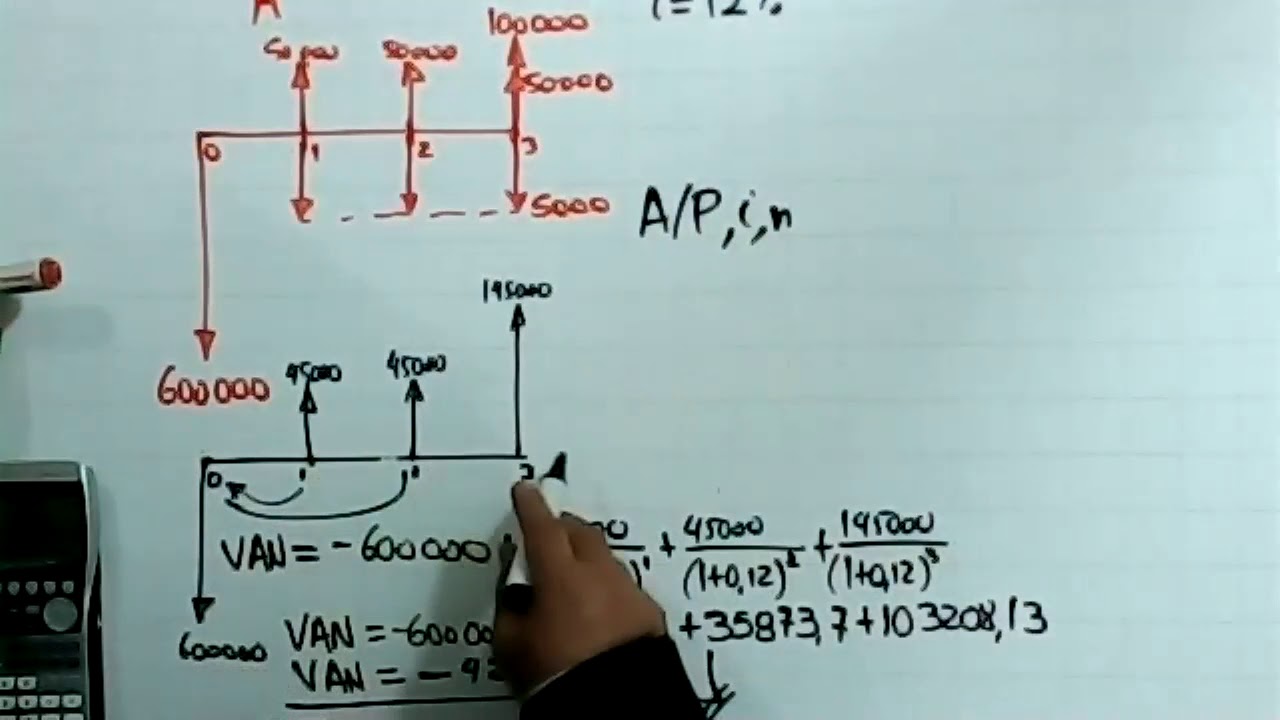 A
i=12%
100000
50000
50000
0 1 2 3
5000
A/P, i, n
195000
600000
45000
45000
0
VAN = -600000 + 45000/(1+0,12)² + 195000/(1+0,12)³
600000
VAN = -60000 +35873,7+103208,13
VAN = -